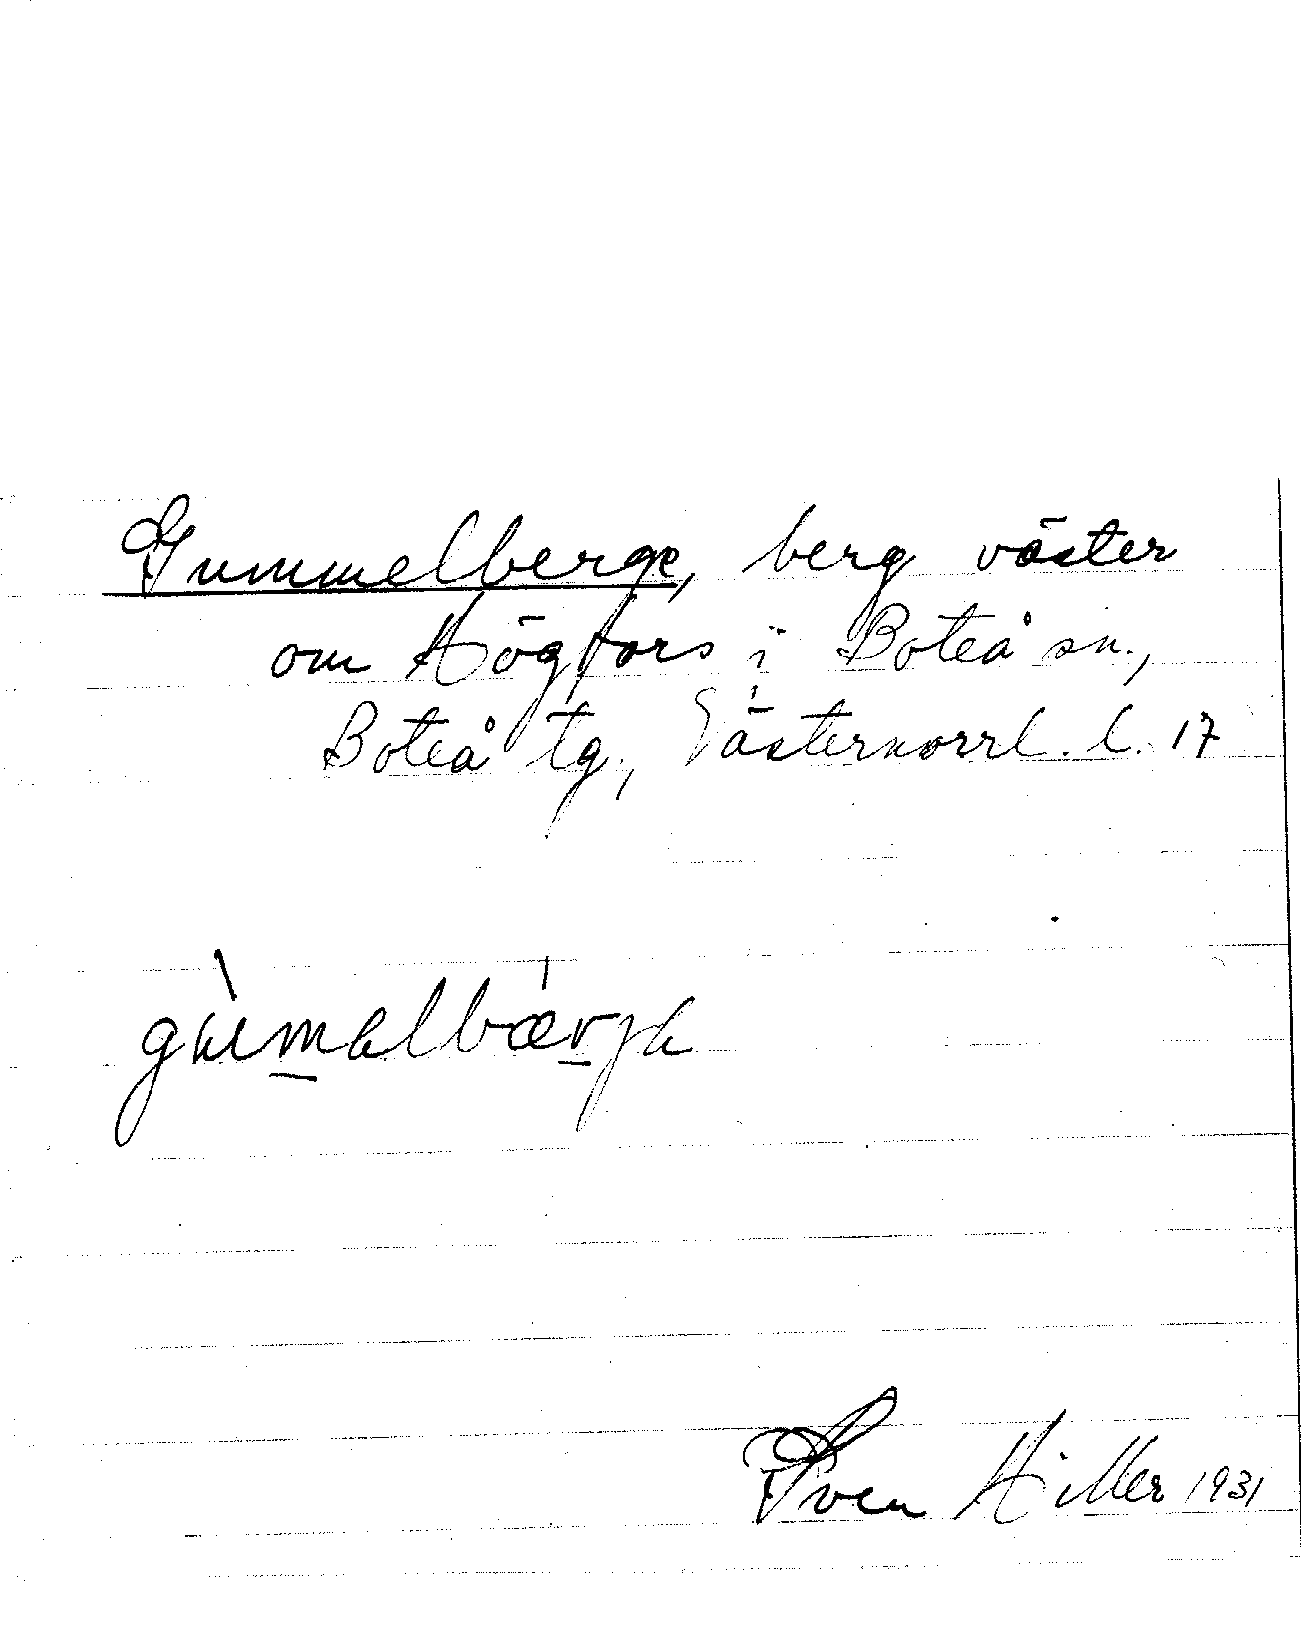 Gummelberge, berg väster
om Högfors i Boteå sn.,
Boteå tg., Västernorrl. l. 17
Sven Hiller 1931